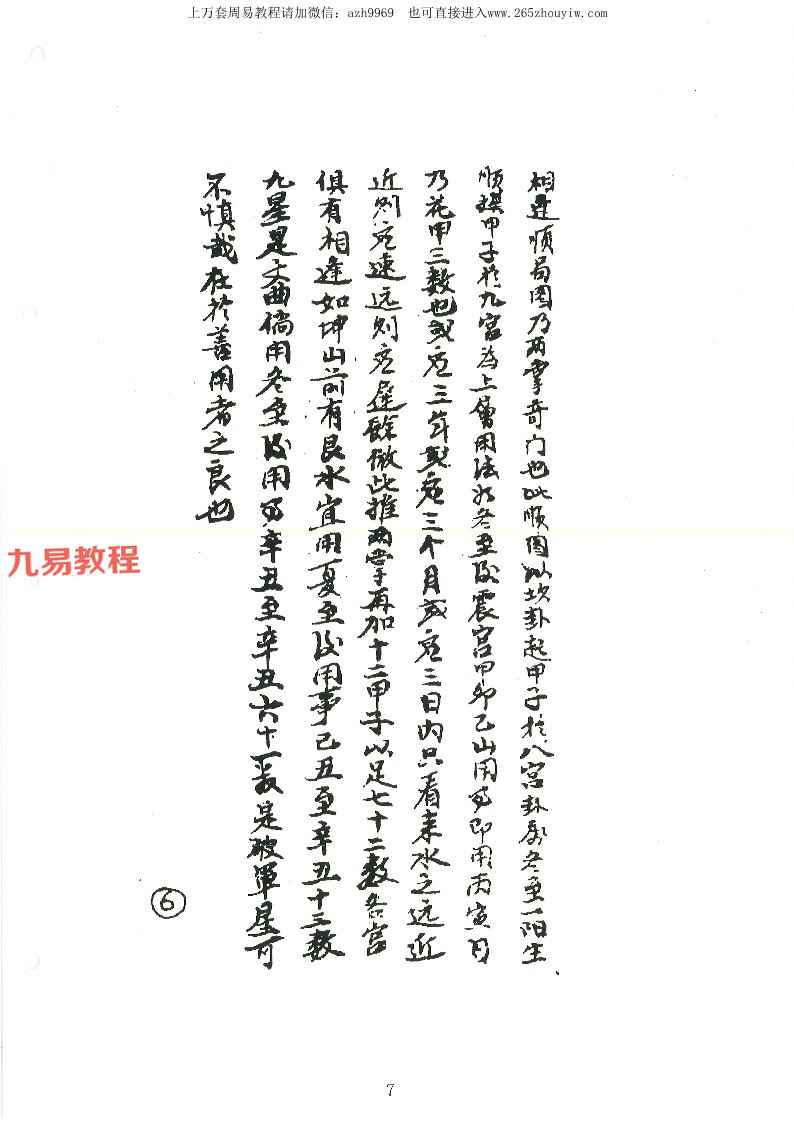 上万套周易教程请加微信：azh9969 也可直接进入www.265zhouyiw.com
相逢順局图乃两掌奇门也此順图以坎卦起甲子於八宫卦裏冬至一阳生
順排甲子於九宫為上層用法如冬至後震宫甲卯乙山用事即用丙寅日
乃花甲三数也或应三年或应三个月或应三日内只看来水之远近
近则应速远则应遲餘倣此推两掌再加十二甲子以足七十二数各宫
俱有相逢如坤山前有艮水宜用夏至後用事己丑至辛丑十三数
九星是文曲倘用冬至後用事辛丑至辛丑六十一数是破軍星可
不慎哉在於善用者之良也
九易教程
6
7